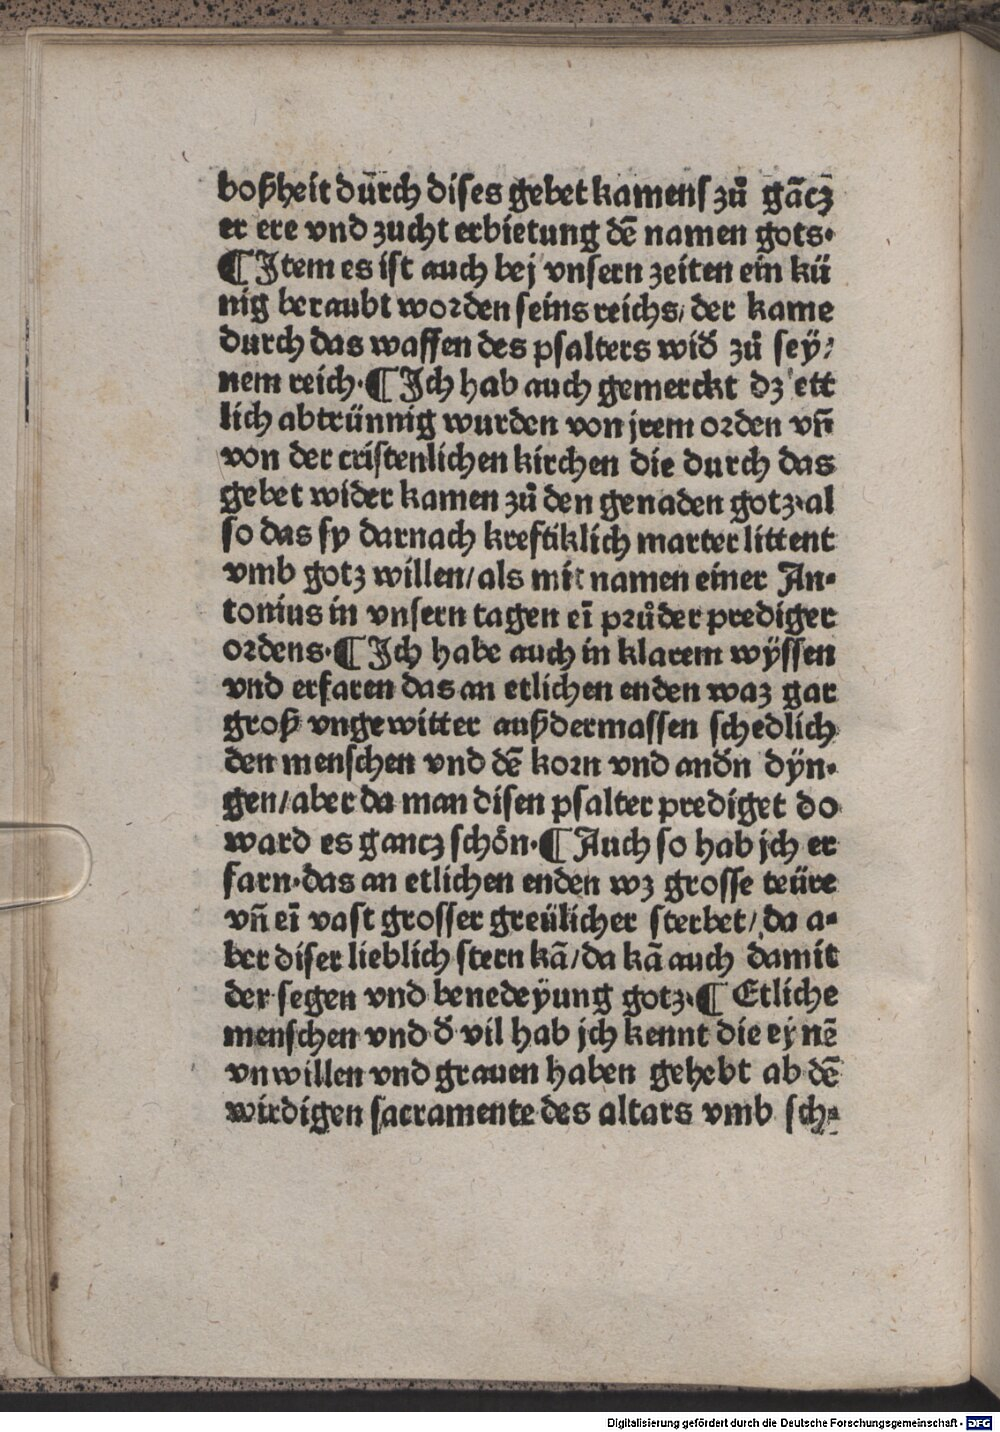 boßheit durch dises gebet kamens zů gãcz
er ere vnd zucht erbietung dẽ namen gots.
¶ Item es ist auch bej vnsern zeiten ein kü
nig beraubt worden seins reichs/ der kame
durch das waffen des psalters wiď zů seÿ⸗
nem reich. ¶ Ich hab auch gemerckt dz ett
lich abtrünnig wurden von jrem orden vñ
von der cristenlichen kirchen die durch das
gebet wider kamen zů den genaden gotz. al
so das sy darnach kreftiklich marter littent
vmb gotz willen/ als mit namen einer An⸗
tonius in vnsern tagen eĩ průder prediger
ordens. ¶ Ich habe auch in klarem wÿssen
vnd erfaren das an etlichen enden waz gar
groß vngewitter außdermassen schedlich
den menschen vnd dẽ korn vnd anďn dÿn⸗
gen/ aber da man disen psalter prediget do
ward es gancz schön. ¶ Auch so hab jch er
farn. das an etlichen enden wz grosse teüre
vñ eĩ vast grosser greülicher sterbet/ da a⸗
ber diser lieblich stern kã/ da kã auch damit
der segen vnd benedeÿung gotz. ¶ Etliche
menschen vnd ď vil hab jch kennt die eynẽ
vnwillen vnd grauen haben gehebt ab dẽ
wirdigen sacramente des altars vmb sch⸗
Digitalisierung gefördert durch die Deutsche Forschungsgemeinschaft - DFG